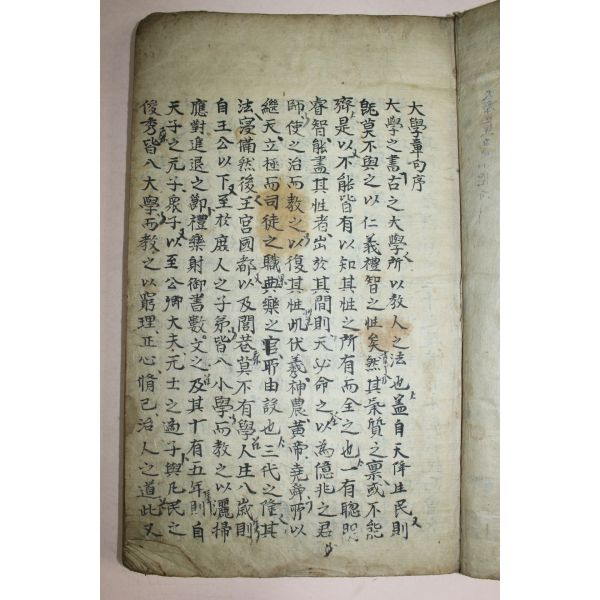 大學章句序
大學之書古之大學所以教人之法也盖自天降生民則
旣莫不與之以仁義禮智之性矣然其氣質之禀或不能
齊是以不能皆有以知其性之所有而全之也一有聦明
睿智能盡其性者出於其間則天必命之以為億兆之君
師使之治而教之以復其性此伏羲神農黃帝堯舜所以
繼天立極而司徒之職典樂之官所由設也三代之隆其
法寖備然後王宮國都以及閭巷莫不有學人生八歲則
自王公以下至於庶人之子弟皆入小學而教之以灑掃
應對進退之節禮樂射御書數之文及其十有五年則自
天子之元子衆子以至公卿大夫元士之適子與凡民之
俊秀皆入大學而教之以窮理正心脩己治人之道此又